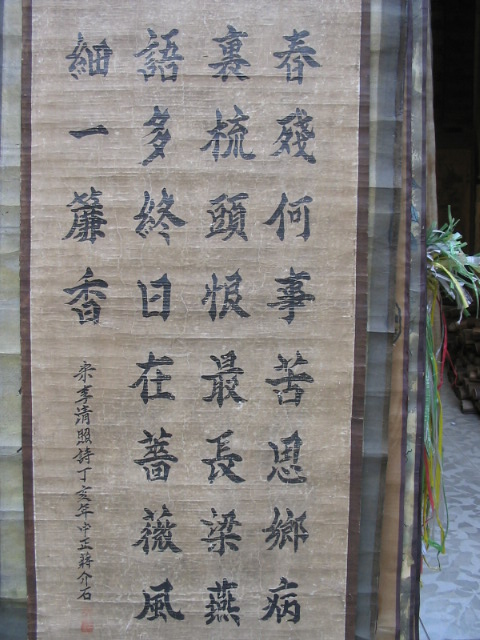 春殘何事苦思鄉病
裏梳頭恨最長梁燕
語多終日在薔薇風
細一簾香
宋李清照詩丁亥年中正蔣介石